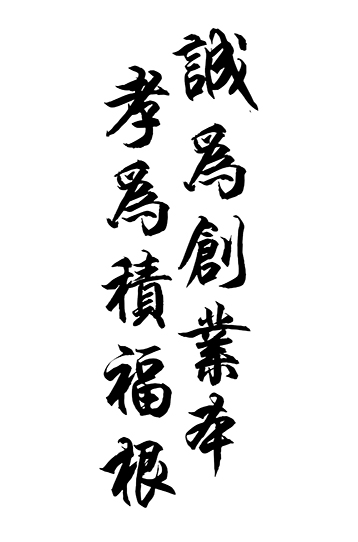 誠為創業本
孝為積福根